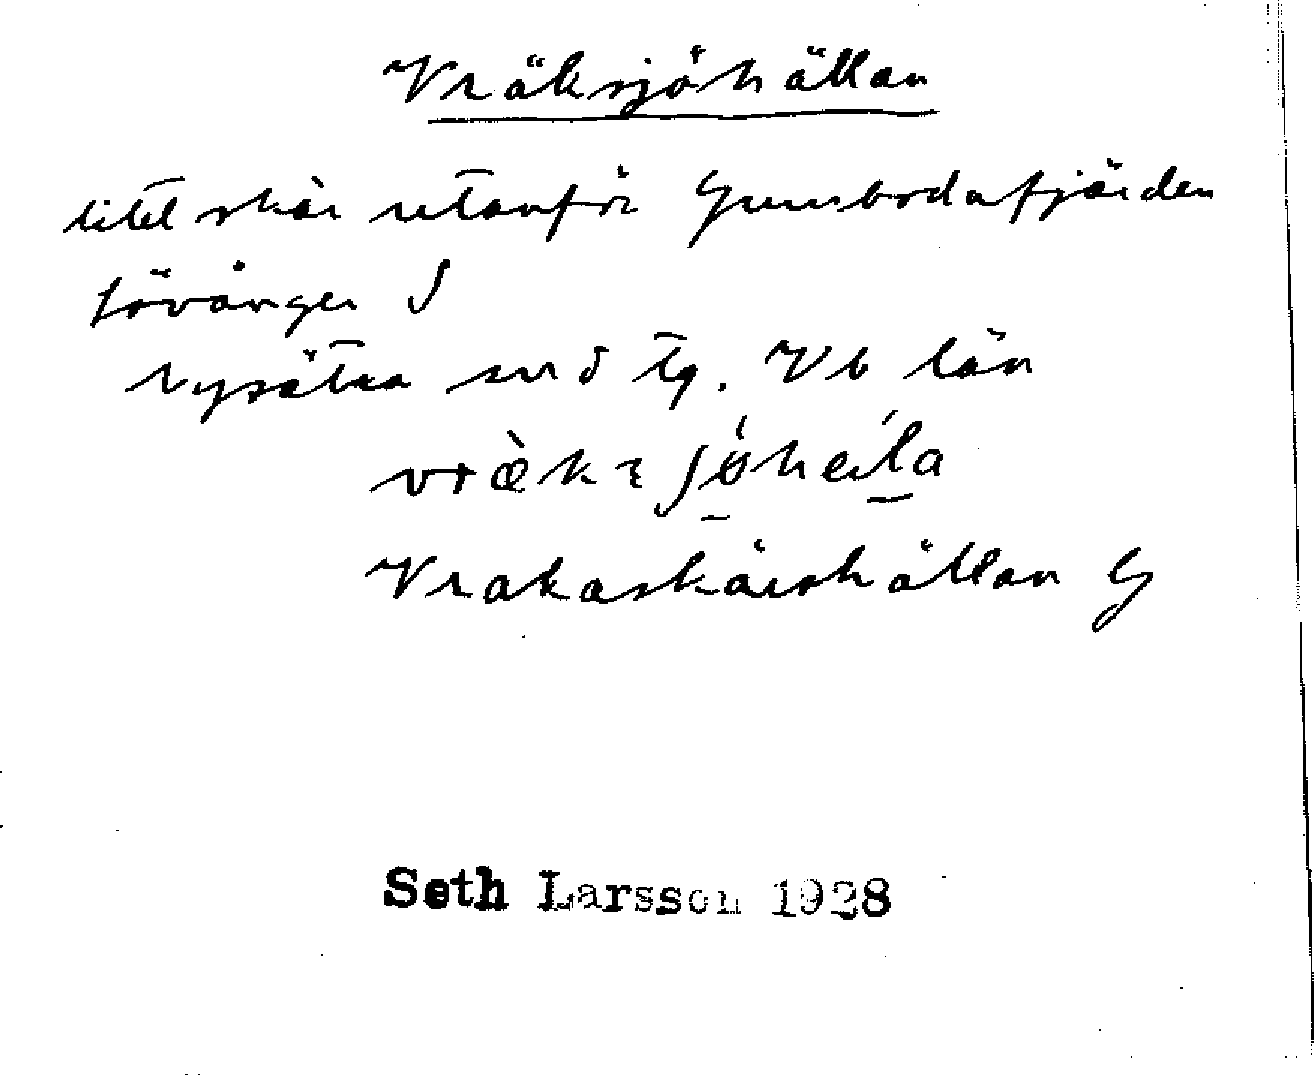 Vräksjöhällan
litet skär utanför Gumbodafjärden
Lövånger S
Nysätra snd tg. Vb län
Vrakaskärshällan G
Seth Larsson 1928